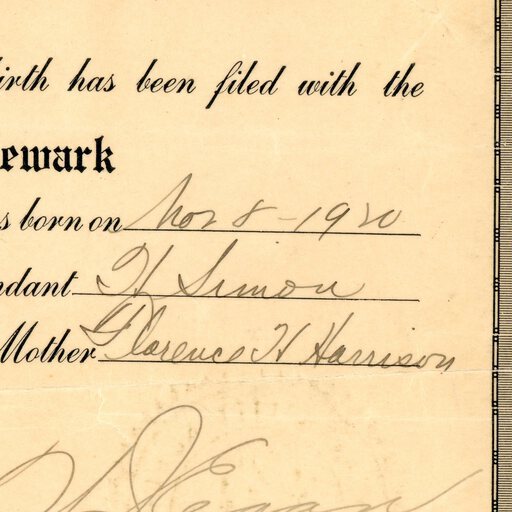 irth has been filed with the
ewark
s born on Nov 8 - 1920
ndant H Simon
Mother Florence H Harrison
Egan